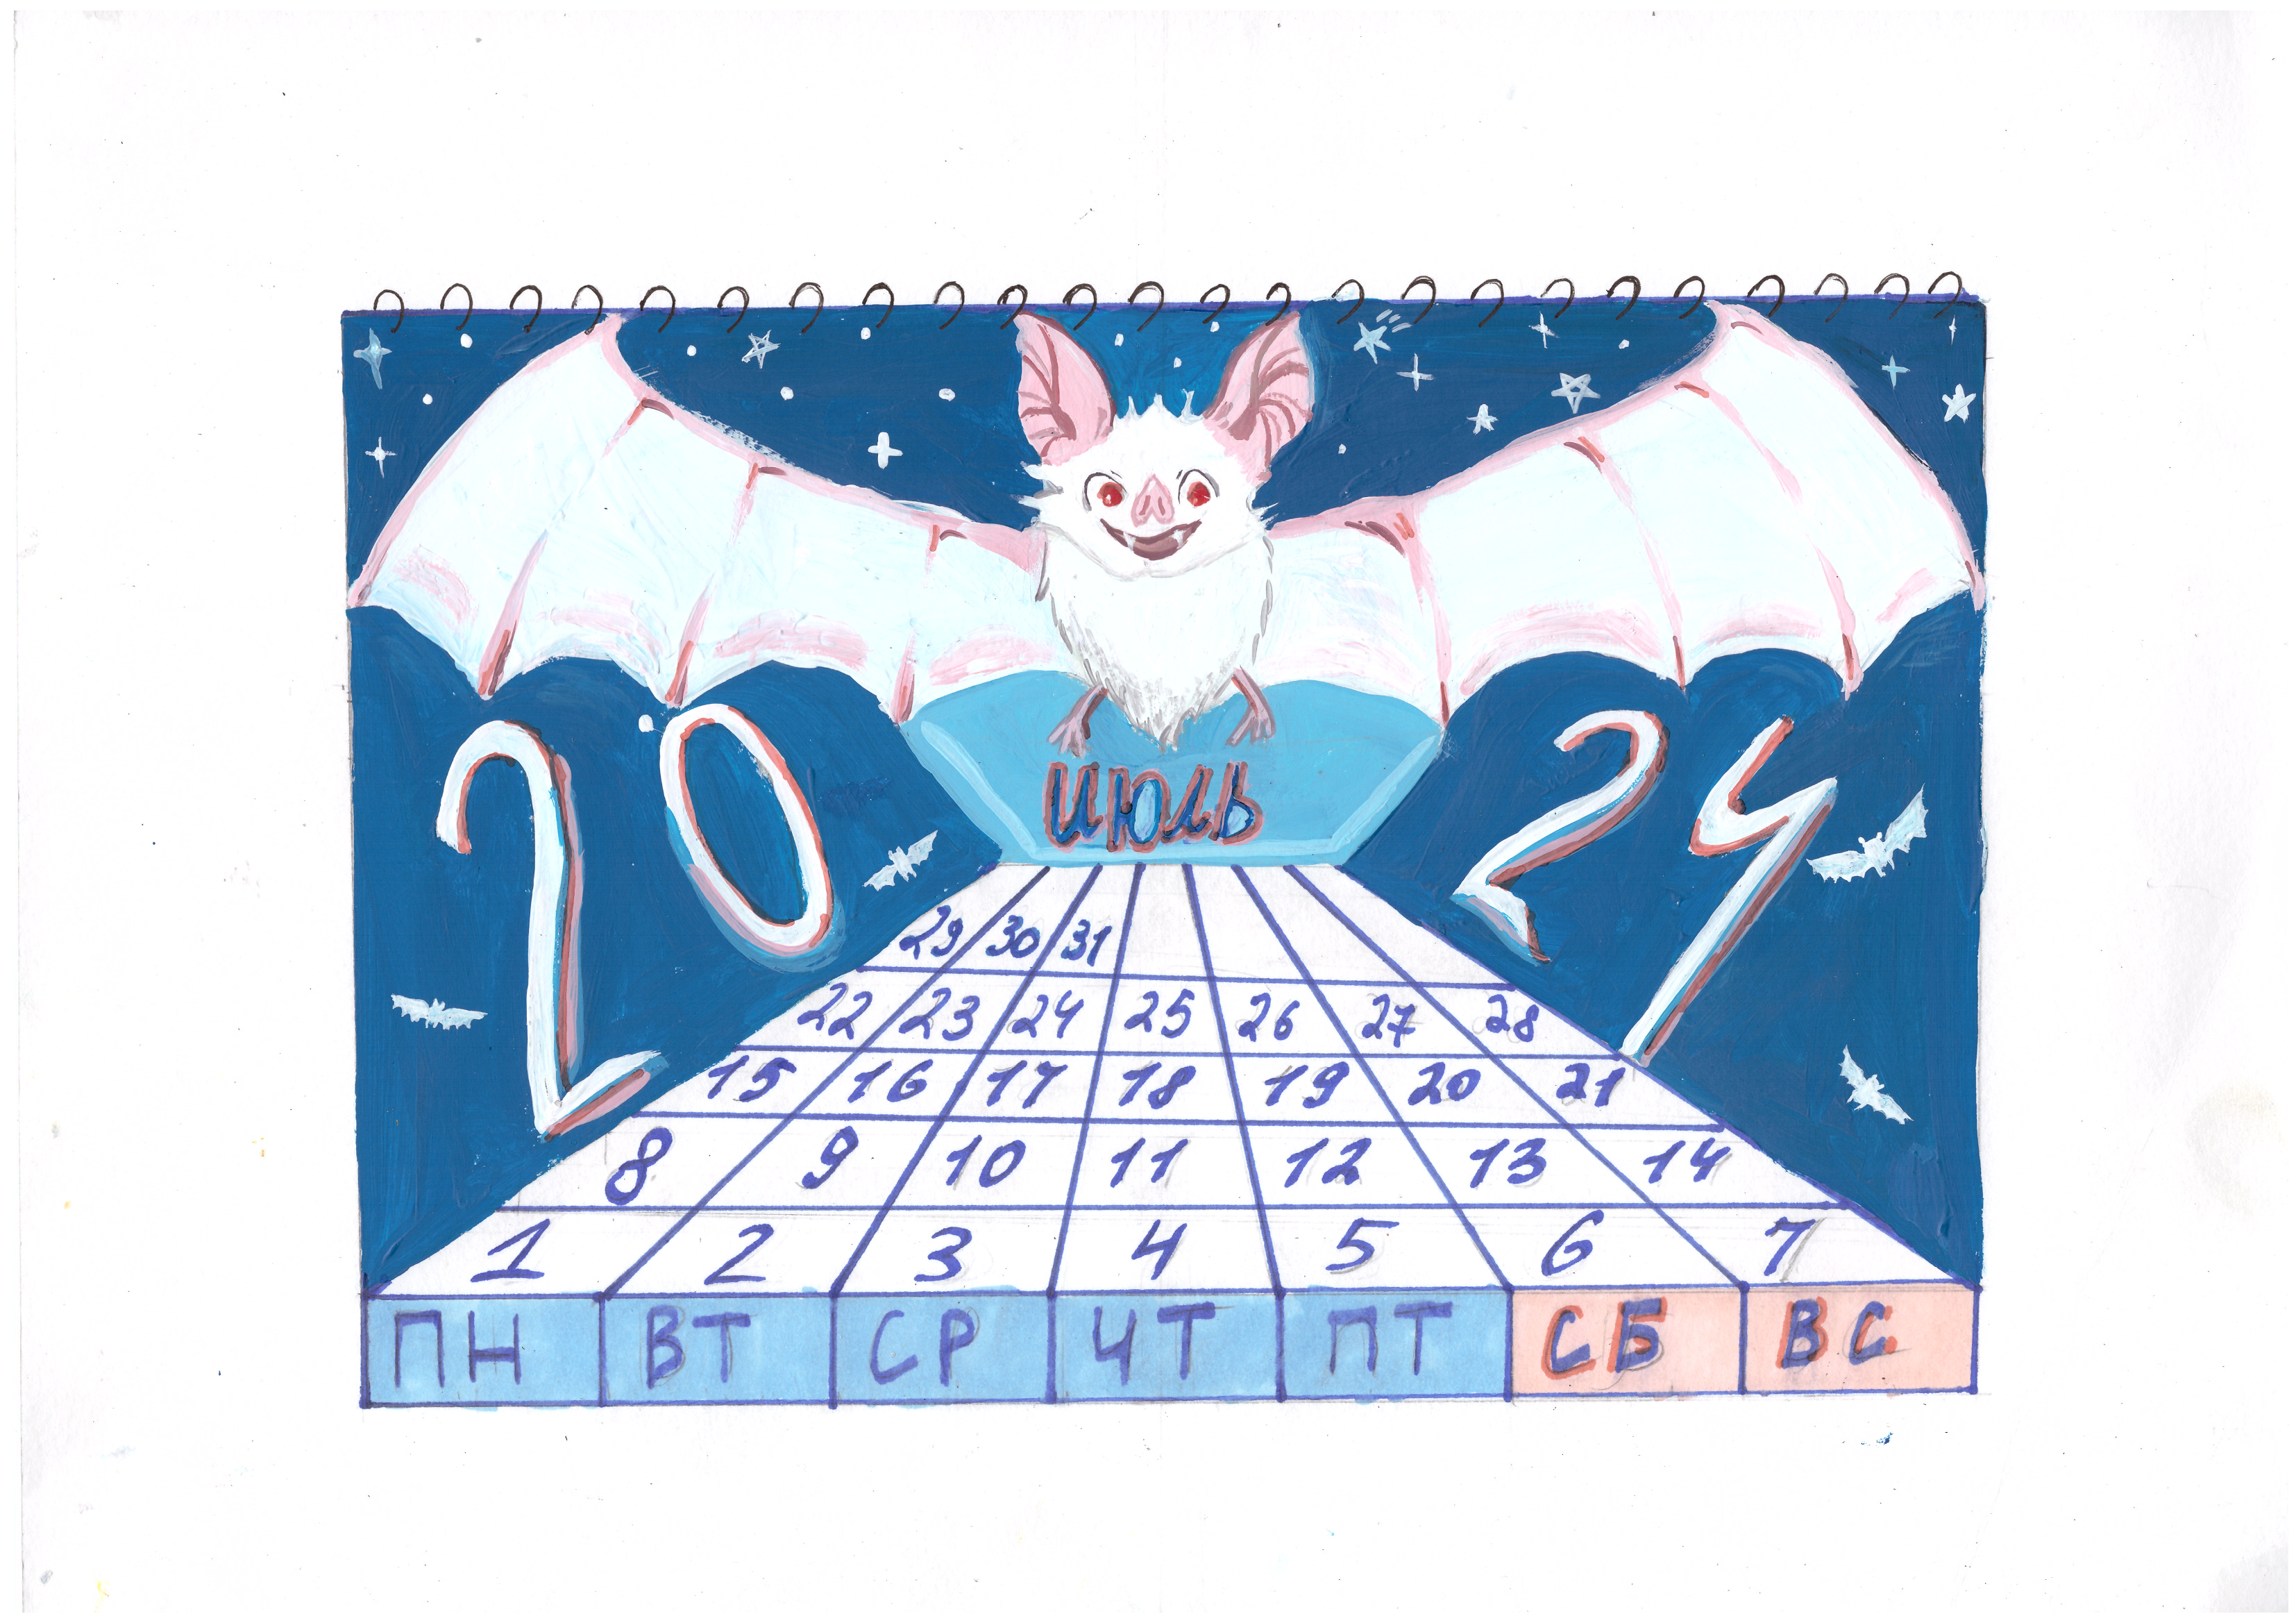 2024
июль
29 30 31
22 23 24 25 26 27 28
15 16 17 18 19 20 21
8 9 10 11 12 13 14
1 2 3 4 5 6 7
ПН ВТ СР ЧТ ПТ СБ ВС